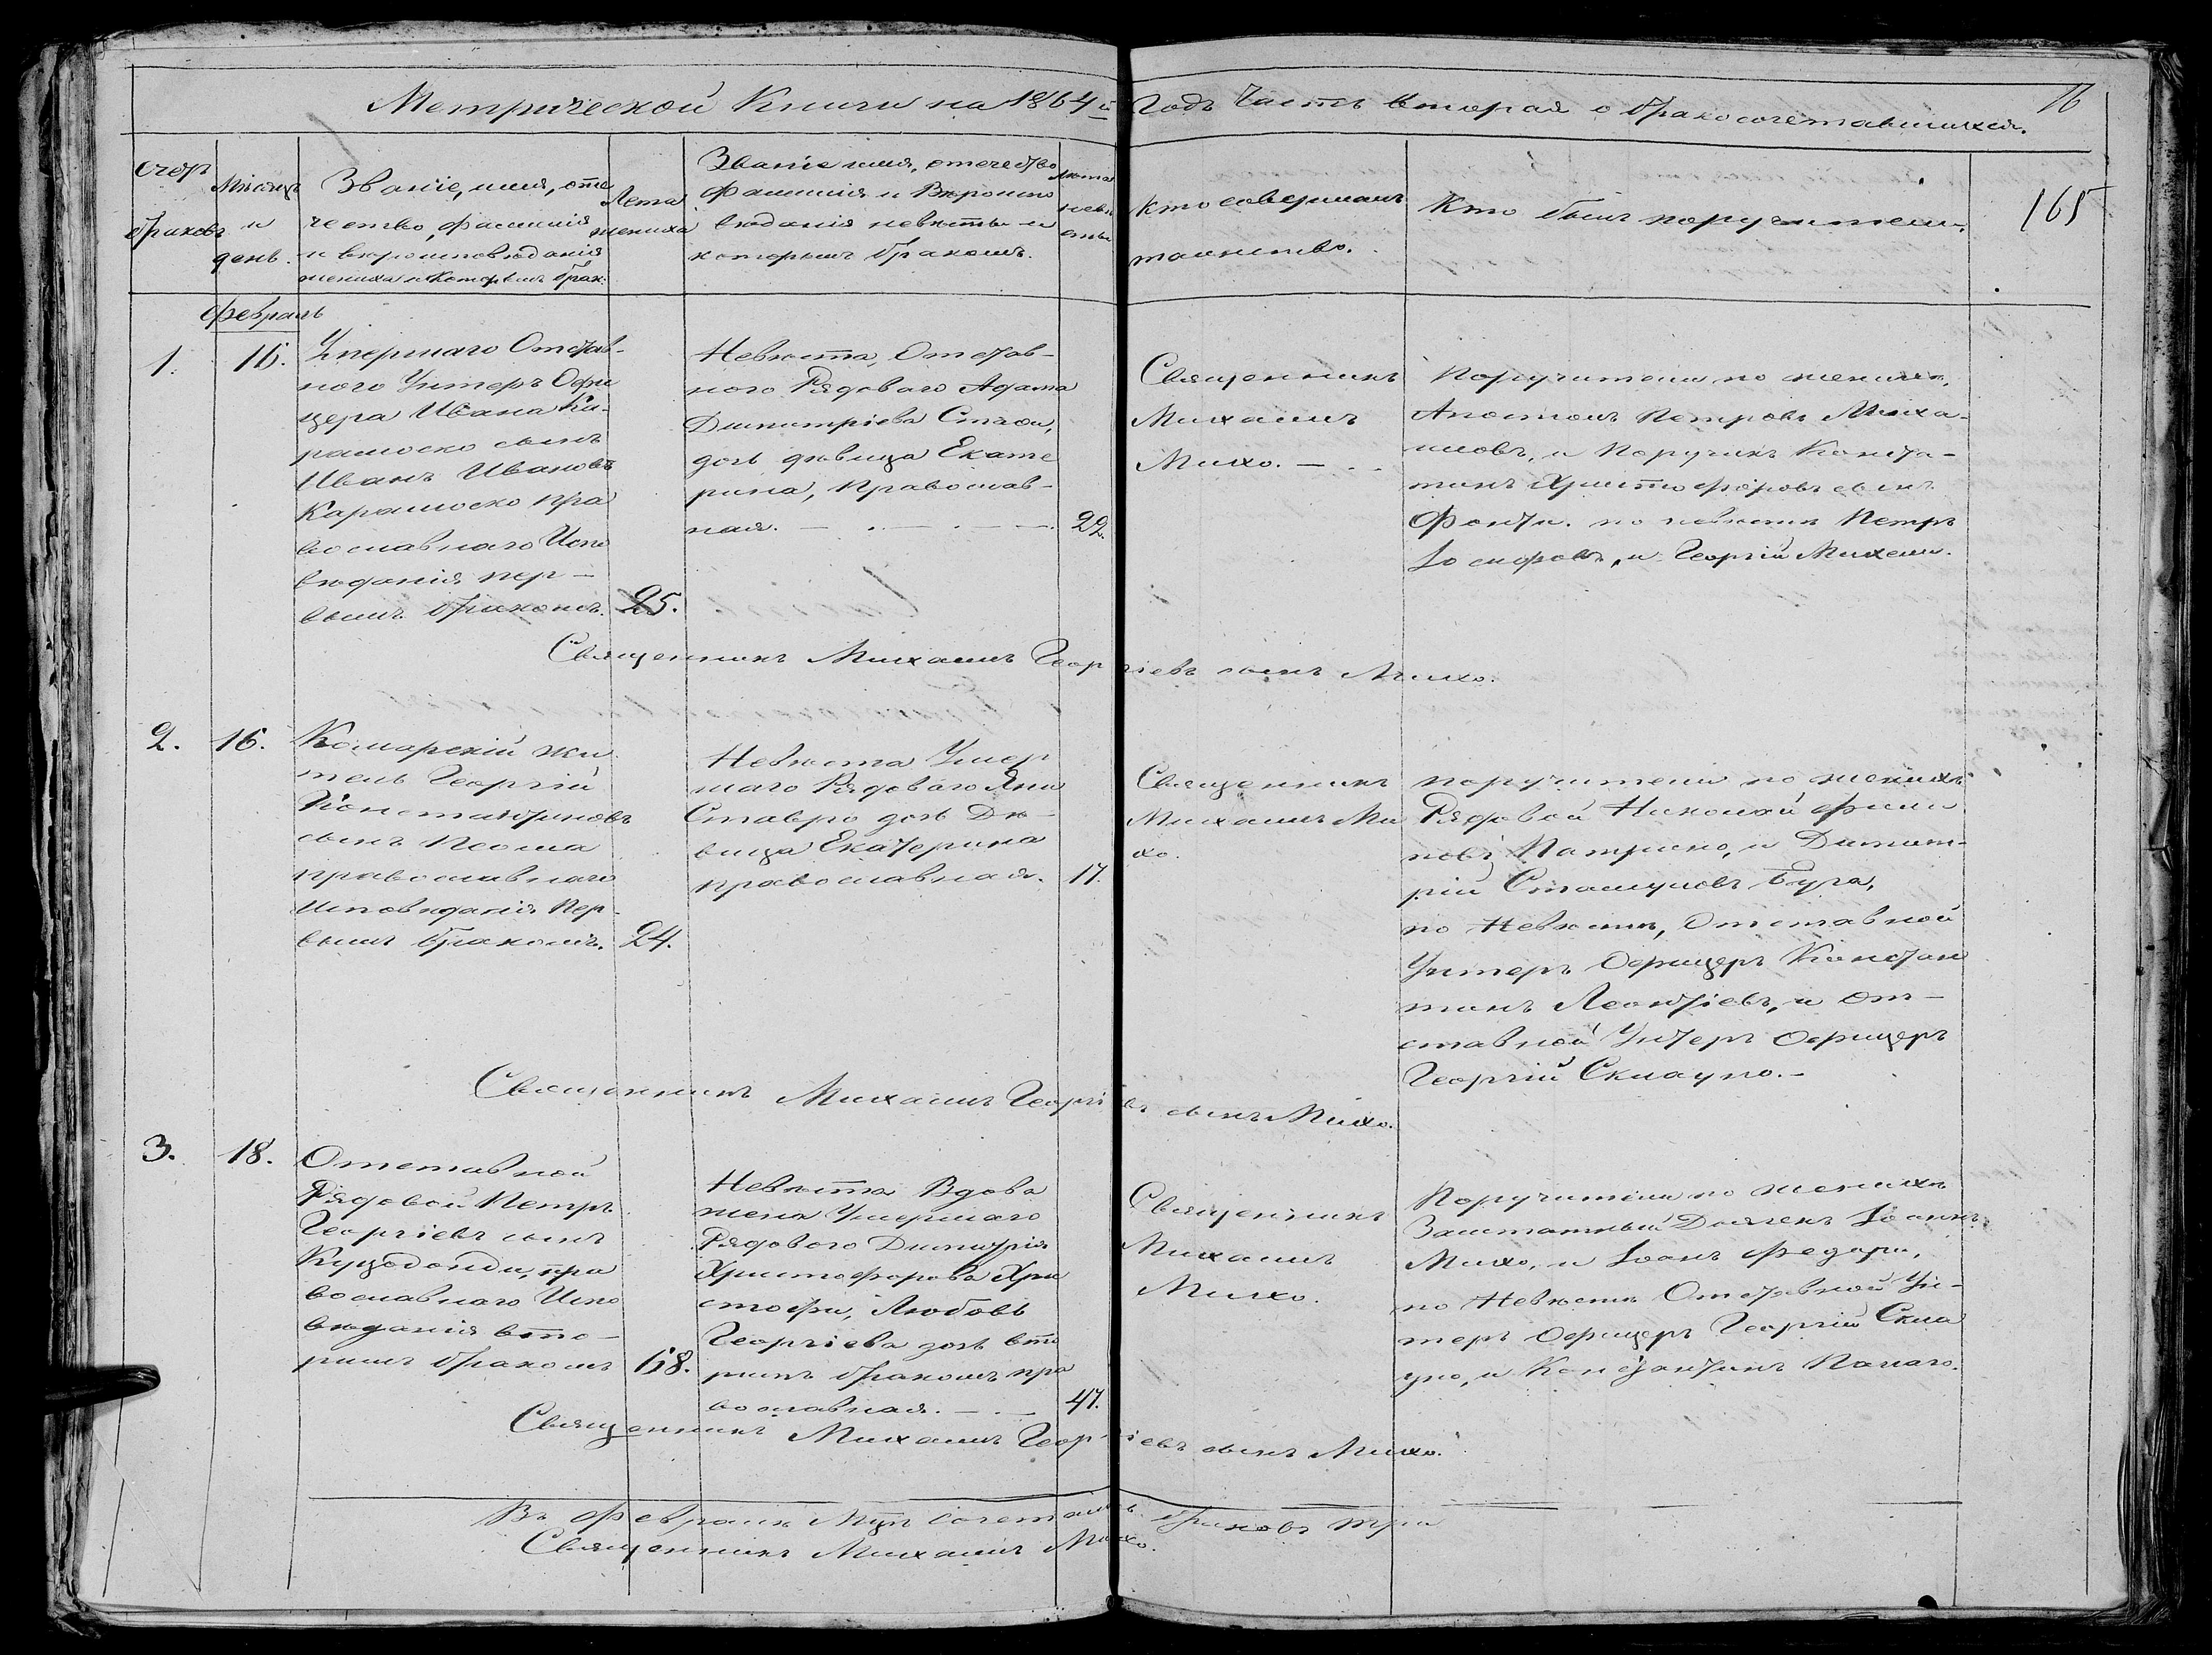 Метрической Книги на 1864й Годъ Часть вторая о бракосочетавшихся.
16
165
Счетъ браковъ
Мѣсяцъ и день.
Званіе, имя, оте
чество, фамилія
и вѣроисповѣданія
жениха и которымъ брак.
Лета жениха
Званіе имя, отечество
фамилія и Вѣроиспо
вѣданія невѣсты и
которымъ бракомъ.
Лета невѣсты
Кто совершалъ
таинство.
Кто былъ поручители.
Февраль
1.
16.
Умершаго Отстав-
ного Унтеръ Офи
цера Ивана Ка-
ралиоско сынъ
Иванъ Ивановъ
Каралиоско пра
вославнаго Испо
вѣданія пер-
вымъ бракомъ.
25.
Невѣста, Отстав-
ного Рядоваго Адама
Димитріева Стаои,
дочь дѣвица Екате
рина, православ-
ная.
22.
Священникъ
Михаилъ
Михо.
Поручители по женихѣ,
Апостолъ Петровъ Миха-
иловъ, и Поручикъ Конста-
тинъ Христофоровъ сынъ
Фонди. по невѣстѣ Петръ
Іосифовъ, и Георгій Михели.
Священникъ Михаилъ Георгіевъ сынъ Михо.
2.
16.
Комарскій жи
тель Георгій
Константиновъ
сынъ Псома
православнаго
Исповѣданія Пер-
вымъ бракомъ.
24.
Невѣста Умер
шаго Рядоваго Яни
Ставро дочь Дѣ-
вица Екатерина
православная.
17.
Священникъ
Михаилъ Ми
хо.
поручители по женихѣ
Рядовой Николай Фили
повъ Патрино, и Димит-
рій Стамуловъ Буга,
по Невѣстѣ, Отставной
Унтеръ Офицеръ Констан
тинъ Леонтіевъ, и От-
ставной Унтеръ Офицеръ
Георгій Склаупо.
Священникъ Михаилъ Георгіевъ сынъ Михо.
3.
18.
Отставной
Рядовой Петръ
Георгіевъ сынъ
Куцодонди, пра
вославнаго Испо
вѣданія вто-
рымъ бракомъ
68.
Невѣста Вдова
жена Умершаго
Рядового Димитрія
Христофорова Хри
стофи, Любовь
Георгіева дочь вто
рымъ бракомъ пра
вославная.
47.
Священникъ
Михаилъ
Михо.
Поручители по женихѣ
Заштатный Дьячекъ Іоаннъ
Михо, и Іоанъ Федори,
по Невѣстѣ Отставной Ун-
теръ Офицеръ Георгій Скла
упо, и Константинъ Папаго.
Священникъ Михаилъ Георгіевъ сынъ Михо.
Въ Февралѣ Мцѣ сочеталось браковъ три
Священникъ Михаилъ Михо.